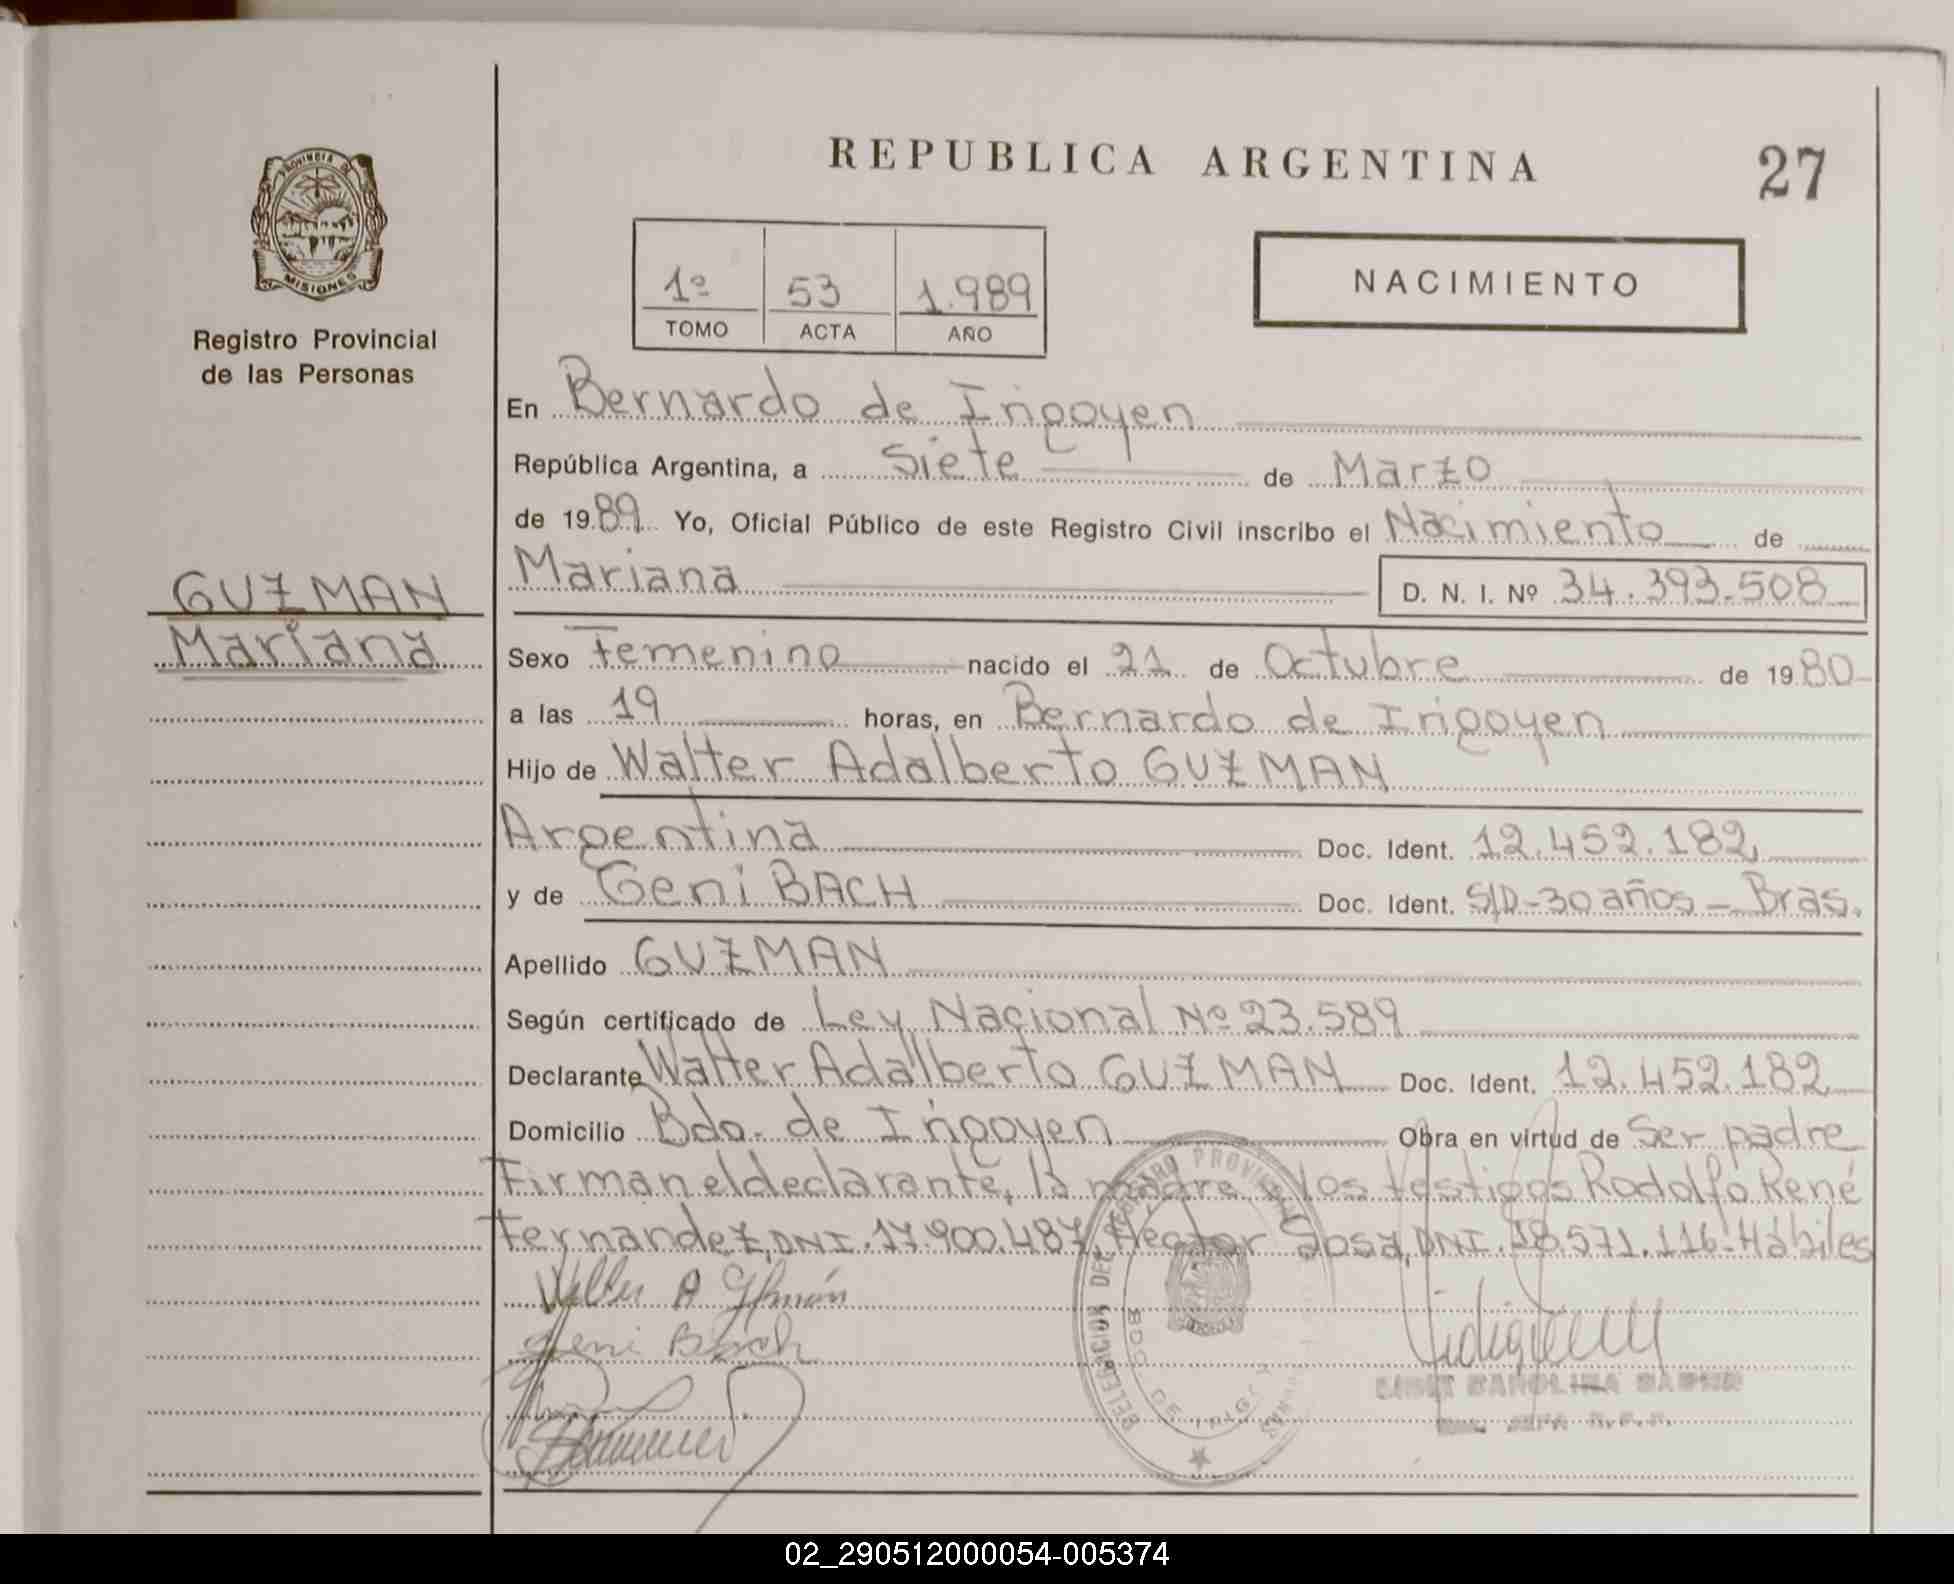 REPUBLICA ARGENTINA
27
PROVINCIA DE
MISIONES
Registro Provincial
de las Personas
1º 53 1.989
TOMO ACTA AÑO
NACIMIENTO
En Bernardo de Irigoyen
República Argentina, a Siete de Marzo
de 1989 Yo, Oficial Público de este Registro Civil inscribo el Nacimiento de
Mariana D. N. I. Nº 34.393.508
GUZMAN
Mariana
Sexo Femenino nacido el 21 de Octubre de 1980
a las 19 horas, en Bernardo de Irigoyen
Hijo de Walter Adalberto GUZMAN
Argentina Doc. Ident. 12.452.182
y de Geni BACH Doc. Ident. S/D-30 años - Bras.
Apellido GUZMAN
Según certificado de Ley Nacional Nº 23.589
Declarante Walter Adalberto GUZMAN Doc. Ident. 12.452.182
Domicilio Bdo. de Irigoyen Obra en virtud de Ser padre
Firman el declarante, la madre y los testigos Rodolfo René
Fernandez, DNI. 17.900.487, Hector Sosa, DNI. 18.571.116- Hábiles
Walter A
Geni Bach
DELEGACION DEL REGISTRO PROVINCIAL
BDO. DE IRIGOYEN
CAROLINA
JEFA R.P.P.
02_290512000054-005374